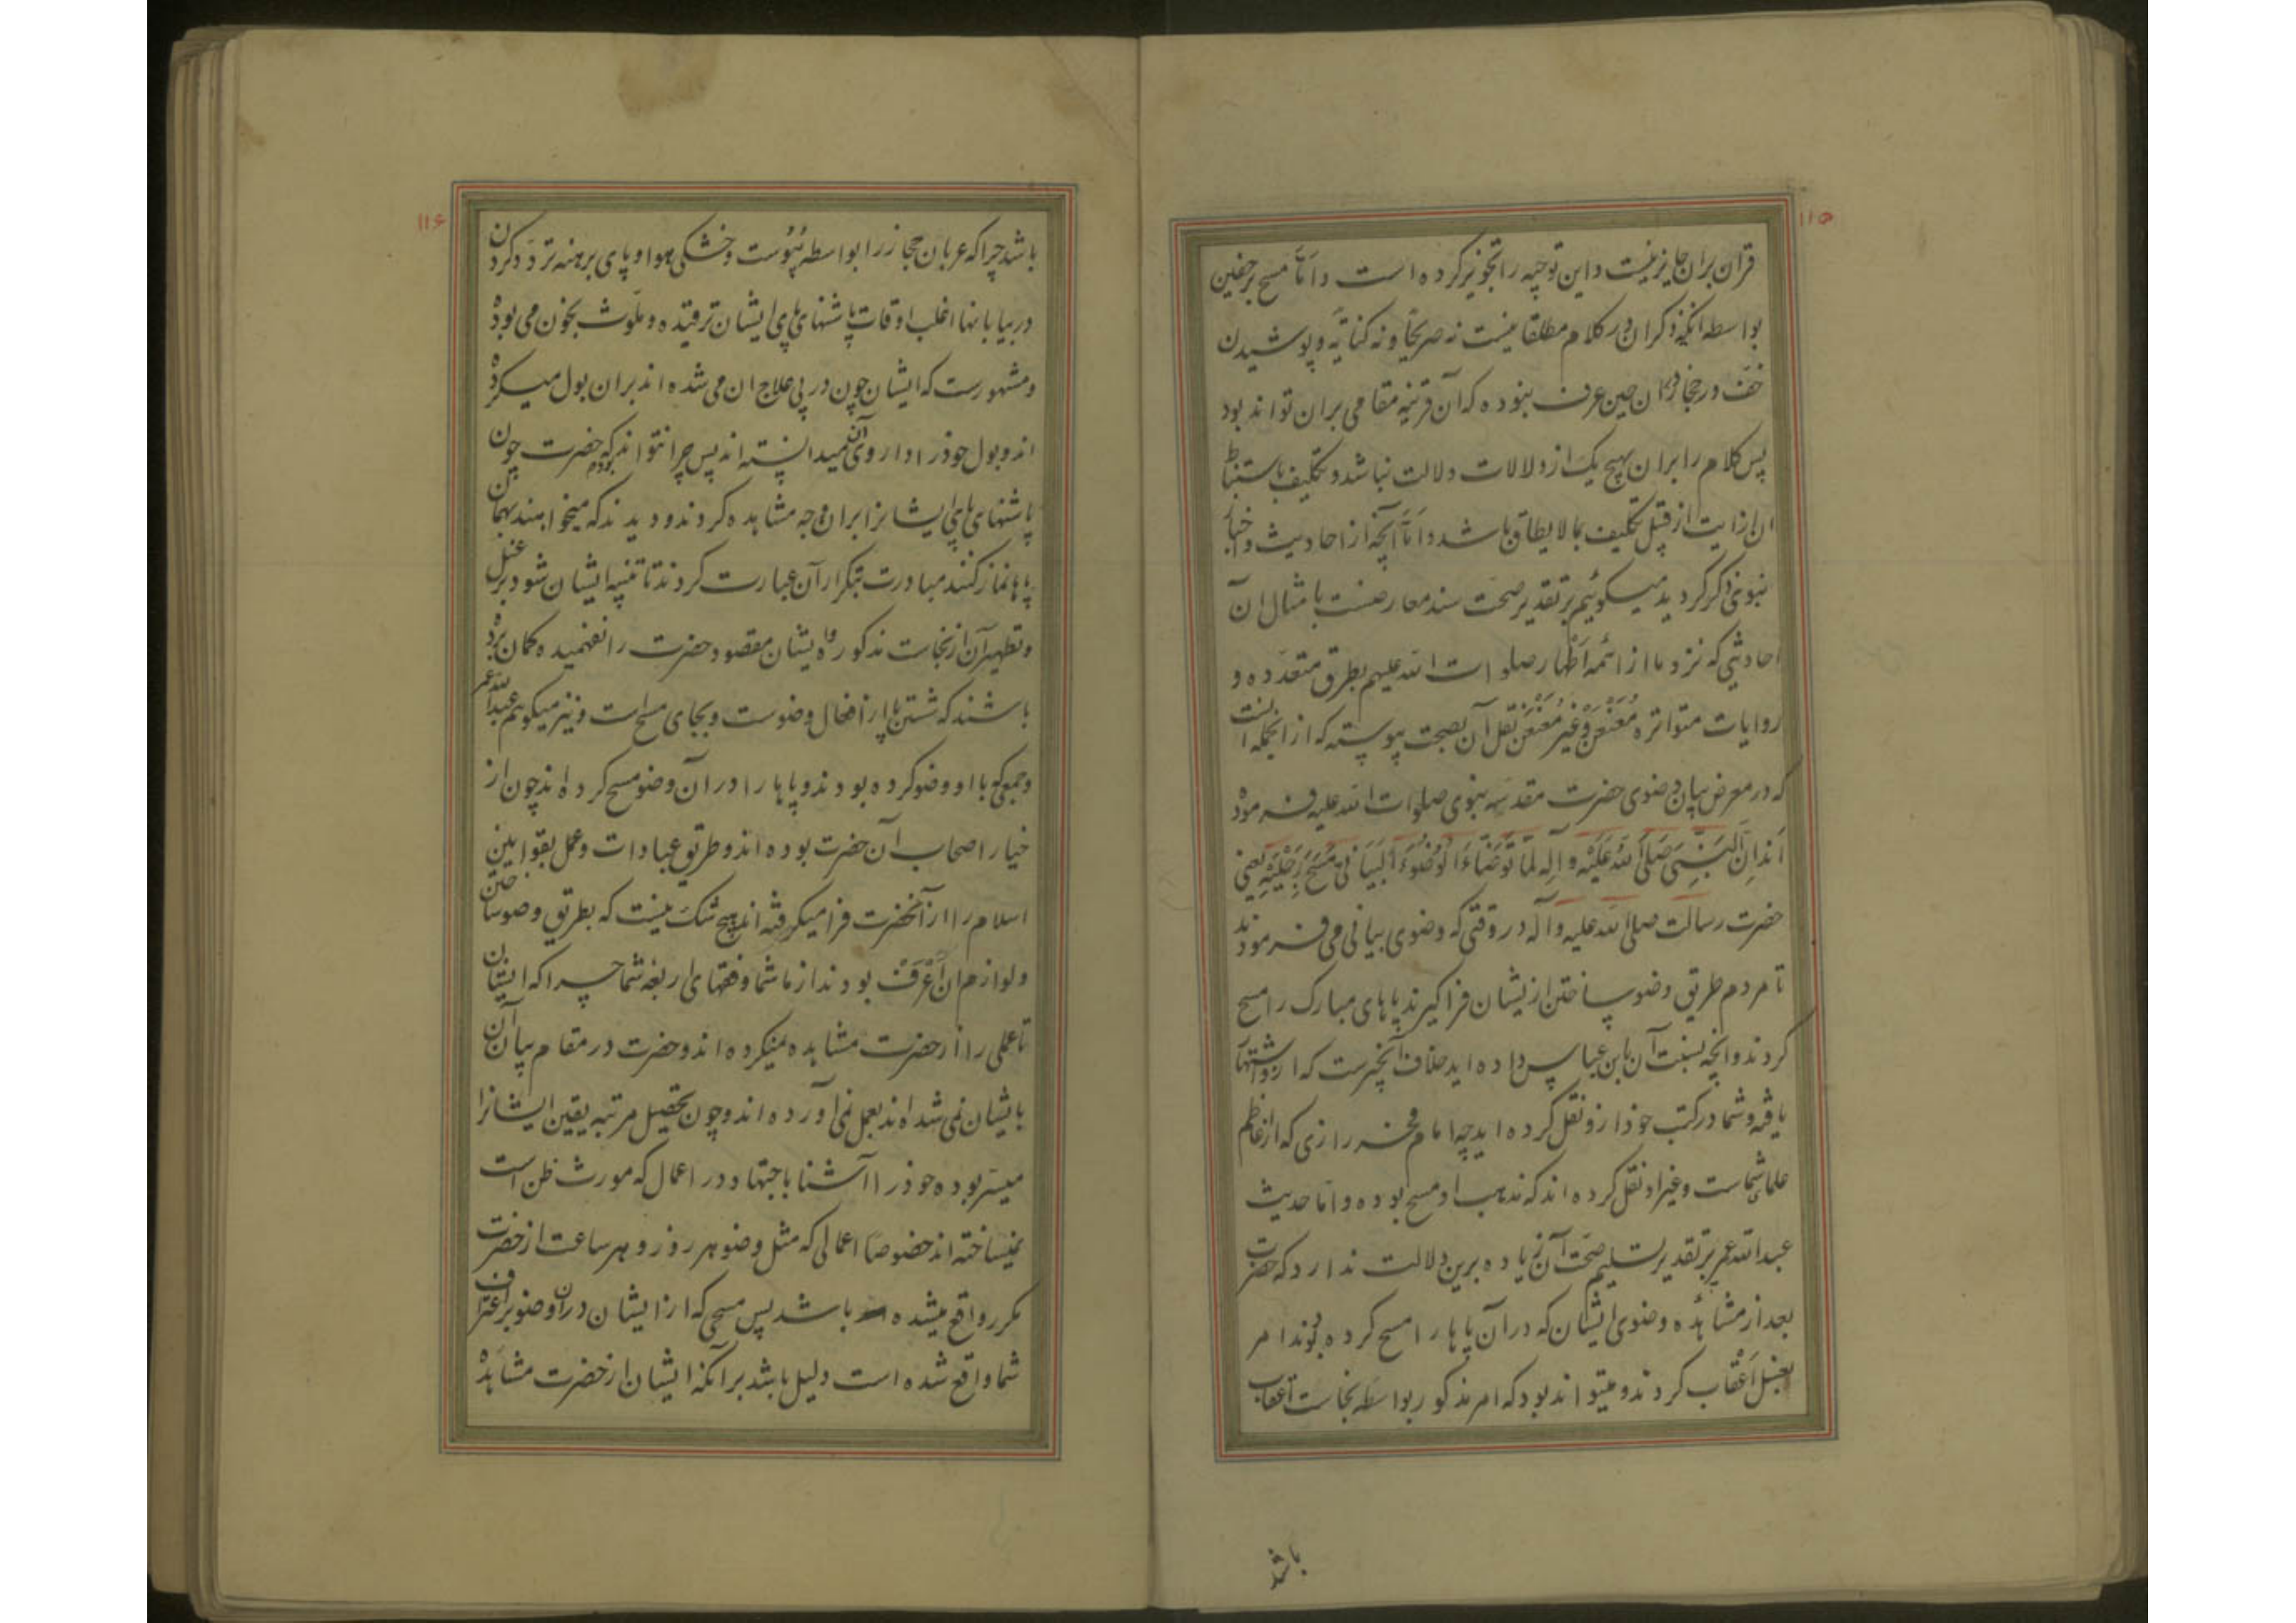 ۱۱۵
قرآن بران جایز نیست و این توجیه را تجویز کرده است و امّا مسح بر خفین
بواسطه آنکه ذکر ان در کلام مطلقا نیست نه صریحًا و نه کنایةً و پوشیدن
خفّ در حجاز دران حین عرف نبوده که آن قرینه مقامی بران تواند بود
پس کلام را بران بهیچ یک از دلالات دلالت نباشد و تکلیف باستنباط
ان ازایت از قبیل تکلیف بما لا یطاق باشد و امّا آنچه از احادیث و اخبار
نبوی ذکر کردید میگوئیم بر تقدیر صحّت سند معارضست بامثال ان
احادیثی که نزد ما از ائمه اطهار صلوات الله علیهم بطرق متعدّده و
روایات متواتره مُعَنعَن و غیر مُعَنعَن نقل آن بصحت پیوسته که از انجمله انست
که در معرض بیان وضوی حضرت مقدسه نبوی صلوات الله علیه فرموده
اند اِنَّ النَّبِیَّ صَلَّی اللّهُ عَلَیْهِ و آلِهِ لَمّا تَوَضّاءَ الْوُضُوءَ الْبَیانی مَسَحَ رِجْلَیْهِ یعنی
حضرت رسالت صلی الله علیه و آله در وقتی که وضوی بیانی می فرمودند
تا مردم طریق وضو ساختن ازیشان فرا گیرند پاهای مبارک را مسح
کردند و انچه نسبت آن بابن عباس داده اید خلاف آنچیزست که ازو اشتهار
یافته و شما در کتب خود ازو نقل کرده اید چه امام فخر رازی که از اعاظم
علمای شماست و غیر او نقل کرده اند که مذهب او مسح بوده و امّا حدیث
عبدالله عمر بر تقدیر تسلیم صحّت آن زیاده برین دلالت ندارد که حضرت
بعد از مشاهده وضوی ایشان که در آن پاها را مسح کرده بودند امر
بغسل اَعْقاب کردند و میتواند بود که امر مذکور بواسطه نجاست اعقاب
باشد
۱۱۶
باشد چرا که عربان حجاز را بواسطه یُبُوست و خشکی هوا و پای برهنه تردّد کردن
در بیابانها اغلب اوقات پاشنهای پای ایشان ترقیده و ملوّث بخون می بوده
و مشهورست که ایشان چون در پی علاج ان می شده اند بران بول میکرده
اند و بول خود را داروی آن میدانسته اند پس چرا نتواند بود که حضرت چون
پاشنهای پای ایشانرا بران وجه مشاهده کردند و دیدند که میخواهند بهمان
پاها نماز کنند مبادرت بتکرار آن عبارت کردند تا تنبیه ایشان شود بر غسل
و تطهیر آن از نجاست مذکور و ایشان مقصود حضرت را نفهمیده گمان برده
باشند که شستن پا از افعال وضوست و بجای مسح است و نیز میگوئیم عبدالله عمر
و جمعی که با او وضو کرده بودند و پاها را در آن وضو مسح کرده اند چون از
خیار اصحاب آن حضرت بوده اند و طریق عبادات و عمل بقوانین
اسلام را از آنحضرت فرا میگرفته اند هیچ شک نیست که بطریق وضو ساختن
و لوازم ان اَعْرَفْ بودند از ما و شما و فقهای اربعه شما چرا که ایشان
تا عملی را از حضرت مشاهده نمیکرده اند و حضرت در مقام بیان آن
بایشان نمی شده اند بعمل نمی آورده اند و چون تحصیل مرتبه یقین ایشانرا
میسّر بوده خود را آشنا باجتهاد در اعمال که مورث ظن است
نمیساخته اند خصوصًا اعمالی که مثل وضو هر روز و هر ساعت از حضرت
مکرر واقع میشده باشد پس مسحی که از ایشان در ان وضو بر اعتراف
شما واقع شده است دلیل باشد بر آنکه ایشان از حضرت مشاهده